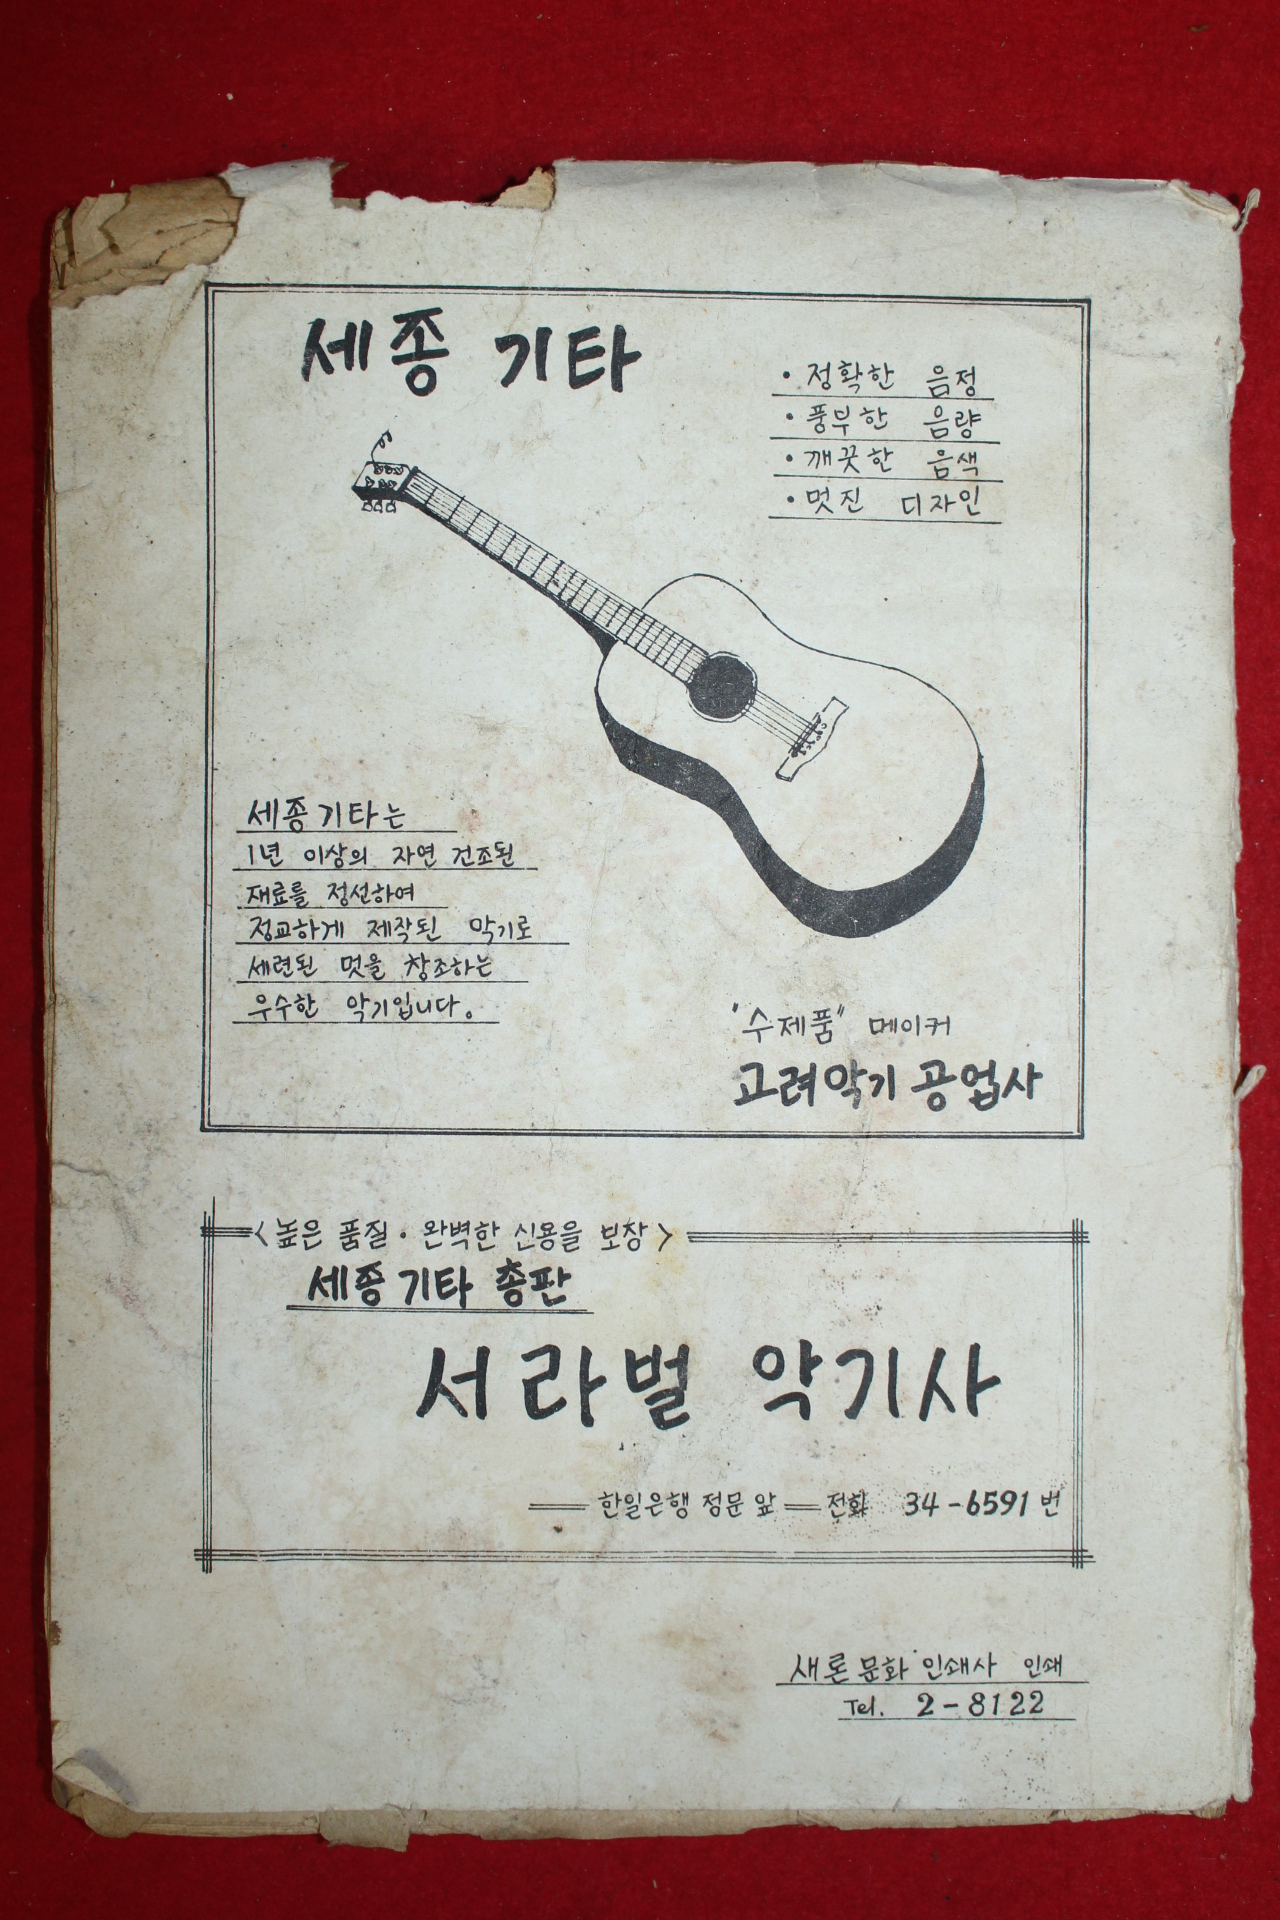 세종 기타
· 정확한 음정
· 풍부한 음량
· 깨끗한 음색
· 멋진 디자인
세종기타는
1년 이상의 자연 건조된
재료를 정선하여
정교하게 제작된 악기로
세련된 멋을 창조하는
우수한 악기입니다。
"수제품" 메이커
고려악기 공업사
<높은 품질 · 완벽한 신용을 보장>
세종기타 총판
서라벌 악기사
한일은행 정문 앞 전화 34-6591 번
새론문화 인쇄사 인쇄
Tel. 2-8122